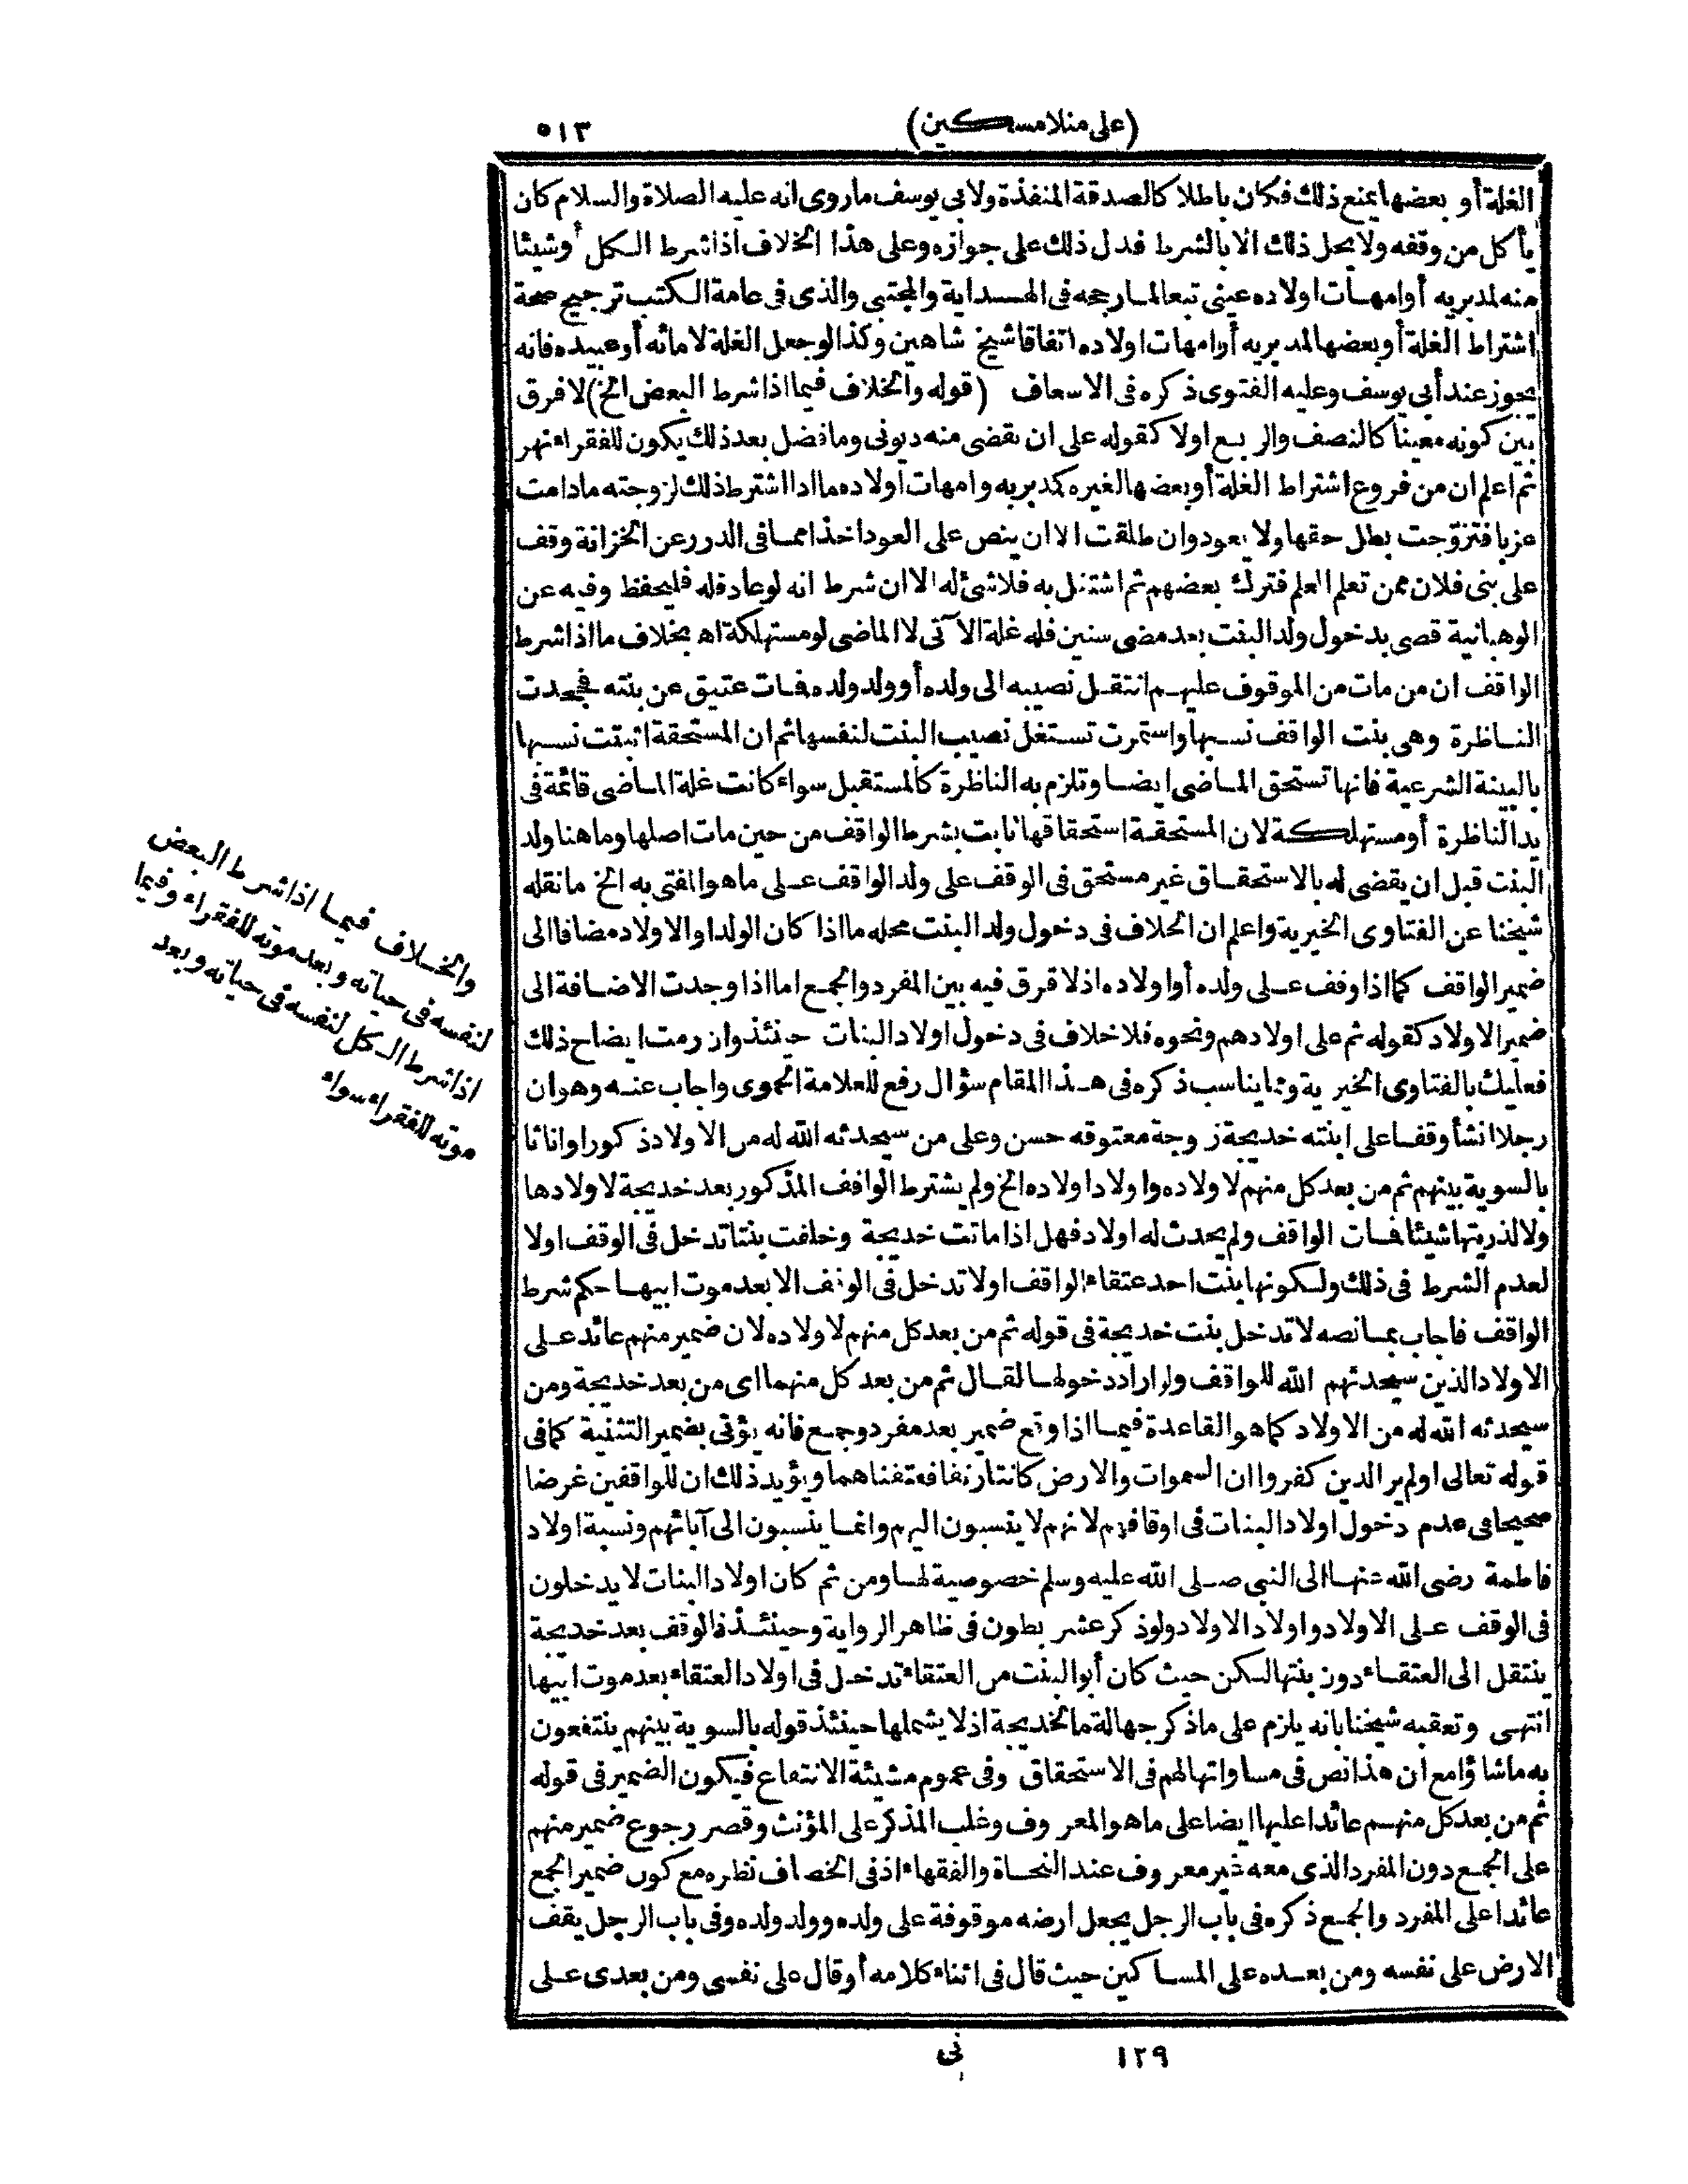 (على منلا مسكين)
٥١٣
الغلة أو بعضها يمنع ذلك فكان باطلا كالصدقة المنفذة ولابي يوسف ماروى انه عليه الصلاة والسلام كان
يأكل من وقفه ولا يحل ذلك الا بالشرط فدل ذلك على جوازه وعلى هذا الخلاف اذا شرط الكل أوشيئا
منه لمدبريه أوامهات اولاده عينى تبعا لما رجحه فى الهداية والمجتبى والذى فى عامة الكتب ترجيح صحة
اشتراط الغلة أو بعضها لمدبريه أوامهات اولاده اتفاقا شيخ شاهين وكذا لو جعل الغلة لامائه أو عبيده فانه
يجوز عند أبى يوسف وعليه الفتوى ذكره فى الاسعاف (قوله والخلاف فيما اذا شرط البعض الخ) لا فرق
بين كونه معينا كالنصف والربع اولا كقوله على ان يقضى منه ديونى وما فضل بعد ذلك يكون للفقراء نهر
ثم اعلم ان من فروع اشتراط الغلة أو بعضها لغيره كمدبريه وامهات اولاده ما اذا اشترط ذلك لزوجته مادامت
عزبا فتزوجت بطل حقها ولا يعود وان طلقت الا ان ينص على العود اخذا مما فى الدرر عن الخزانة وقف
على بنى فلان ممن تعلم العلم فترك بعضهم ثم اشتغل به فلا شئ له الا ان شرط انه لو عاد فله فليحفظ وفيه عن
الوهبانية قضى بدخول ولد البنت بعد مضى سنين فله غلة الآتى لا الماضى لو مستهلكة اه بخلاف ما اذا شرط
الواقف ان من مات من الموقوف عليهم انتقل نصيبه الى ولده أو ولد ولده فمات عتيق عن بنته فجحدت
الناظرة وهى بنت الواقف نسبها واستمرت تستغل نصيب البنت لنفسها ثم ان المستحقة اثبتت نسبها
بالبينة الشرعية فانها تستحق الماضى ايضا وتلزم به الناظرة كالمستقبل سواء كانت غلة الماضى قائمة فى
يد الناظرة أو مستهلكة لان المستحقة استحقاقها ثابت بشرط الواقف من حين مات اصلها وما هنا ولد
البنت قبل ان يقضى له بالاستحقاق غير مستحق فى الوقف على ولد الواقف على ما هو المفتى به الخ ما نقله
شيخنا عن الفتاوى الخيرية واعلم ان الخلاف فى دخول ولد البنت محله ما اذا كان الولد او الاولاد مضافا الى
ضمير الواقف كما اذا وقف على ولده أو اولاده اذ لا فرق فيه بين المفرد والجمع اما اذا وجدت الاضافة الى
ضمير الاولاد كقوله ثم على اولادهم ونحوه فلا خلاف فى دخول اولاد البنات حينئذ وان رمت ايضاح ذلك
فعليك بالفتاوى الخيرية ومما يناسب ذكره فى هذا المقام سؤال رفع للعلامة الحموى واجاب عنه وهو ان
رجلا انشأ وقفا على ابنته خديجة زوجة معتوقه حسن وعلى من سيحدثه الله له من الاولاد ذكورا واناثا
بالسوية بينهم ثم من بعد كل منهم لاولاده واولاد اولاده الخ ولم يشترط الواقف المذكور بعد خديجة لاولادها
ولا لذريتها شيئا فمات الواقف ولم يحدث له اولاد فهل اذا ماتت خديجة وخلفت بنتا تدخل فى الوقف اولا
لعدم الشرط فى ذلك ولكونها بنت احد عتقاء الواقف اولا تدخل فى الوقف الا بعد موت ابيها حكم شرط
الواقف فاجاب بما نصه لا تدخل بنت خديجة فى قوله ثم من بعد كل منهم لاولاده لان ضمير منهم عائد على
الاولاد الذين سيحدثهم الله للواقف ولو اراد دخولها لقال ثم من بعد كل منهما اى من بعد خديجة ومن
سيحدثه الله له من الاولاد كما هو القاعدة فيما اذا وقع ضمير بعد مفرد وجمع فانه يؤتى بضمير التثنية كما فى
قوله تعالى اولم ير الذين كفروا ان السموات والارض كانتا رتقا ففتقناهما ويؤيد ذلك ان للواقفين غرضا
صحيحا فى عدم دخول اولاد البنات فى اوقافهم لانهم لا ينسبون اليهم وانما ينسبون الى آبائهم ونسبة اولاد
فاطمة رضى الله عنها الى النبى صلى الله عليه وسلم خصوصية لها ومن ثم كان اولاد البنات لا يدخلون
فى الوقف على الاولاد واولاد الاولاد ولو ذكر عشر بطون فى ظاهر الرواية وحينئذ فالوقف بعد خديجة
ينتقل الى العتقاء دون بنتها لكن حيث كان أبو البنت من العتقاء تدخل فى اولاد العتقاء بعد موت ابيها
انتهى وتعقبه شيخنا بانه يلزم على ما ذكر جهالة ما لخديجة اذ لا يشملها حينئذ قوله بالسوية بينهم ينتفعون
به ما شاؤا مع ان هذا نص فى مساواتها لهم فى الاستحقاق وفى عموم مشيئة الانتفاع فيكون الضمير فى قوله
ثم من بعد كل منهم عائدا عليها ايضا على ما هو المعروف وغلب المذكر على المؤنث وقصر رجوع ضمير منهم
على الجمع دون المفرد الذى معه غير معروف عند النحاة والفقهاء اذ فى الخصاف نظره مع كون ضمير الجمع
عائدا على المفرد والجمع ذكره فى باب الرجل يجعل ارضه موقوفة على ولده وولد ولده وفى باب الرجل يقف
الارض على نفسه ومن بعده على المساكين حيث قال فى اثناء كلامه أو قال على نفسى ومن بعدى على
والخلاف فيما اذا شرط البعض
لنفسه فى حياته وبعد موته للفقراء وفيما
اذا شرط الكل لنفسه فى حياته وبعد
موته للفقراء سواء
١٢٩
نى